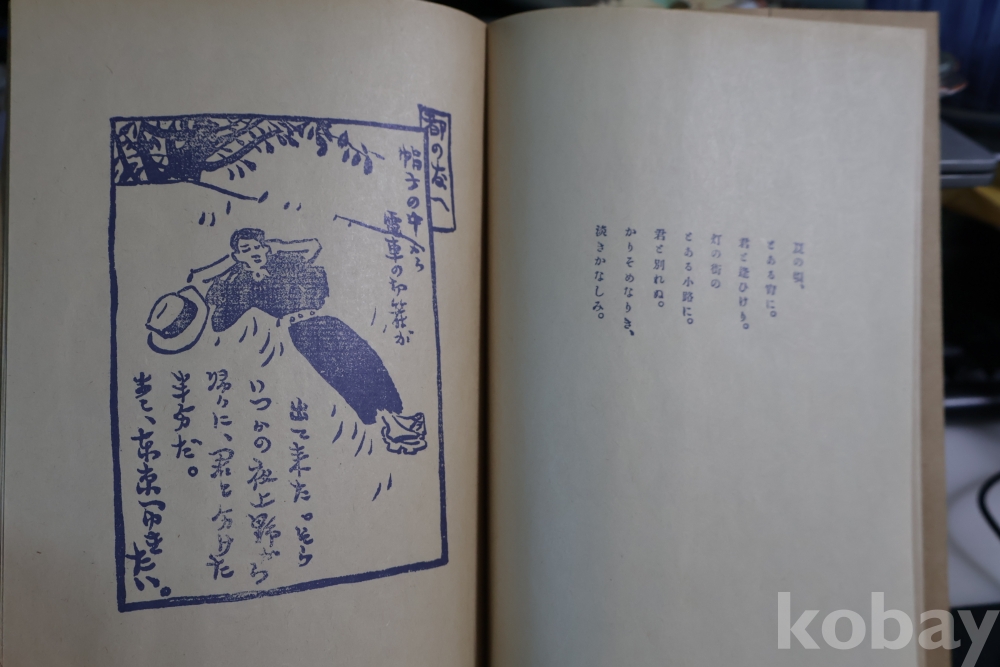 夏の頃、
とある宵に。
君と逢ひけり。
灯の街の
とある小路に。
君と別れぬ。
かりそめなりき、
淡きかなしみ。
の友へ
帽子の中から
電車の切符が
出て来た。そら
いつかの夜上野から
帰りに、君と分けた
半分だ。
東京へ行きたい。
kobay